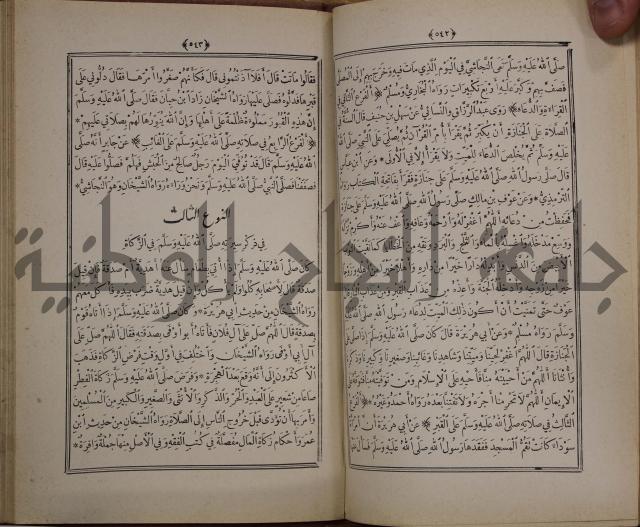 ﴿٥٤٢﴾
صلى الله عليه وسلم نعى النجاشي في اليوم الذي مات فيه وخرج بهم إلى المصلى
فصف بهم وكبر عليه أربع تكبيرات رواه البخاري ومسلم ﴿الفرع الثاني في
القراءة والدعاء﴾ روى عبد الرزاق والنسائي عن سهل بن حنيف قال السنة في
الصلاة على الجنازة أن يكبر ثم يقرأ بأم القرآن ثم يصلي على النبي صلى الله
عليه وسلم ثم يخلص الدعاء للميت ولا يقرأ إلا في الأولى * وعن ابن عباس
قال صلى رسول الله صلى الله عليه وسلم على جنازة فقرأ بفاتحة الكتاب رواه
الترمذي * وعن عوف بن مالك صلى رسول الله صلى الله عليه وسلم على جنازة
فحفظت من دعائه اللهم اغفر له وارحمه وعافه واعف عنه وأكرم نزله
ووسع مدخله واغسله بالماء والثلج والبرد ونقه من الخطايا كما نقيت الثوب
الأبيض من الدنس وأبدله دارا خيرا من داره وأهلا خيرا من أهله وزوجا
خيرا من زوجه وأدخله الجنة وأعذه من عذاب القبر ومن عذاب النار قال
عوف حتى تمنيت أن أكون ذلك الميت لدعاء رسول الله صلى الله عليه
وسلم رواه مسلم * وعن أبي هريرة قال كان صلى الله عليه وسلم إذا صلى على
الجنازة قال اللهم اغفر لحينا وميتنا وشاهدنا وغائبنا وصغيرنا وكبيرنا وذكرنا
وأنثانا اللهم من أحييته منا فأحيه على الإسلام ومن توفيته منا فتوفه على
الإيمان اللهم لا تحرمنا أجره ولا تفتنا بعده رواه أحمد وغيره * ﴿الفرع
الثالث في صلاته صلى الله عليه وسلم على القبر﴾ عن أبي هريرة أن امرأة
سوداء كانت تقم المسجد ففقدها رسول الله صلى الله عليه وسلم فسأل عنها
﴿٥٤٣﴾
فقالوا ماتت قال أفلا آذنتموني قال فكأنهم صغروا أمرها فقال دلوني على
قبرها فدلوه فصلى عليها رواه الشيخان زاد ابن حبان فقال صلى الله عليه وسلم
إن هذه القبور مملوءة ظلمة على أهلها وإن الله ينورها لهم بصلاتي عليهم *
﴿الفرع الرابع في صلاته صلى الله عليه وسلم على الغائب﴾ عن جابر أنه صلى
الله عليه وسلم قال قد توفي اليوم رجل صالح من الحبش فهلم فصلوا عليه قال
فصففنا فصلى النبي صلى الله عليه وسلم ونحن وراءه رواه الشيخان وهو النجاشي *
النوع الثالث
في ذكر سيرته صلى الله عليه وسلم في الزكاة
كان صلى الله عليه وسلم إذا أتي بطعام سأل عنه أهدية أم صدقة فإن قيل
صدقة قال لأصحابه كلوا ولم يأكل وإن قيل هدية ضرب بيده فأكل معهم
رواه الشيخان من حديث أبي هريرة * وكان صلى الله عليه وسلم إذا أتاه قوم
بصدقة قال اللهم صل على آل فلان فأتاه أبو أوفى بصدقته فقال اللهم صل على
آل أبي أوفى رواه الشيخان واختلف في أول وقت فرض الزكاة فذهب
الأكثرون إلى أنه وقع بعد الهجرة * وفرض صلى الله عليه وسلم زكاة الفطر
صاعا من شعير على العبد والحر والذكر والأنثى والصغير والكبير من المسلمين
وأمر بها أن تؤدى قبل خروج الناس إلى الصلاة رواه الشيخان من حديث ابن
عمر وأحكام زكاة المال مفصلة في كتب الفقه وفي الأصل منها جملة وافرة *
جامعة النجاح الوطنية